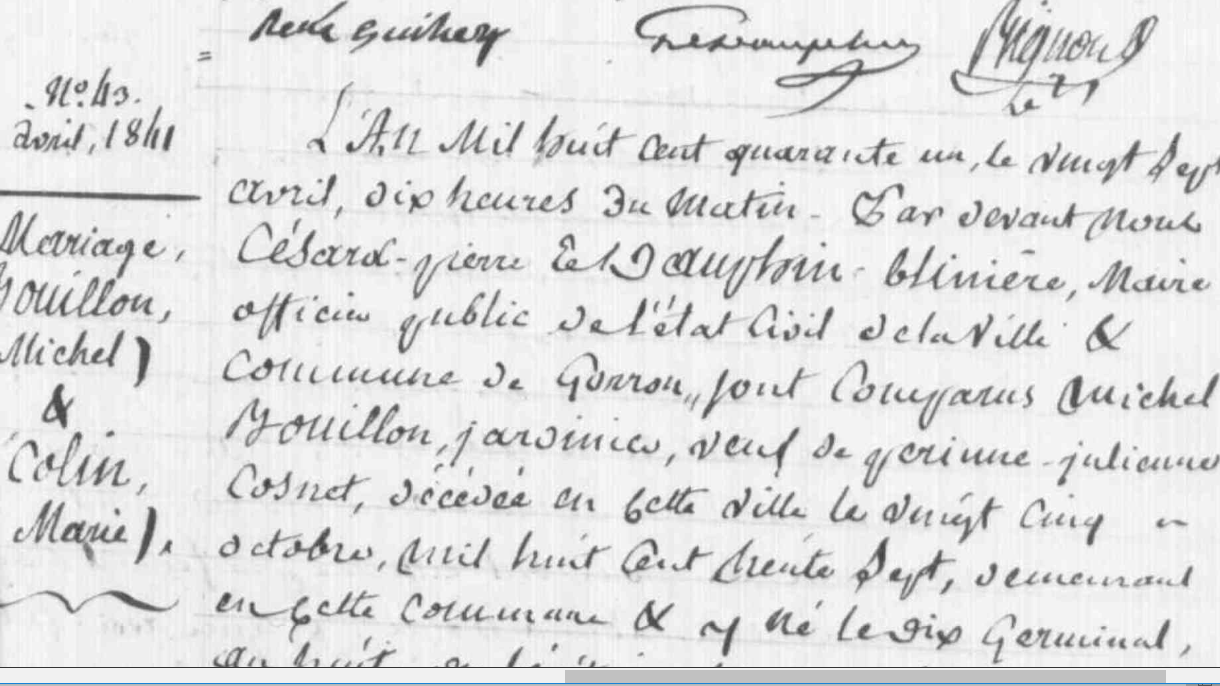 René Guihery
N.º 43.
avril, 1841
Mariage,
Bouillon,
Michel)
&
Colin,
Marie).
L'An Mil huit cent quarante un, le vingt Sept
avril, dix heures du Matin - Par devant Nous
César-pierre Le Dauphin - blinière, Maire
officier public de l'état Civil de la Ville &
Commune de Gorron,, sont Comparus Michel
Bouillon, jardinier, veuf de perinne-julienne
Cosnet, décédée en cette ville le vingt cinq
octobre, mil huit Cent trente Sept, demeurant
en cette Commune & y Né le dix Germinal,
an huit